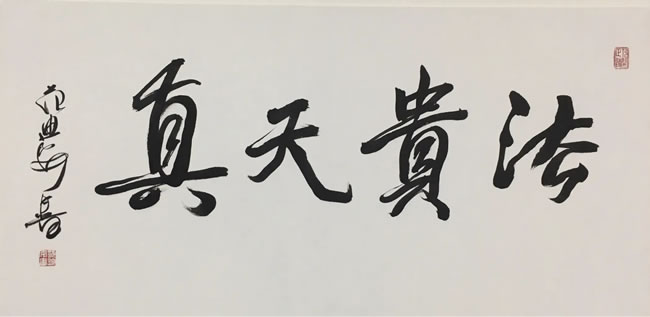 法貴天真
范迪安書